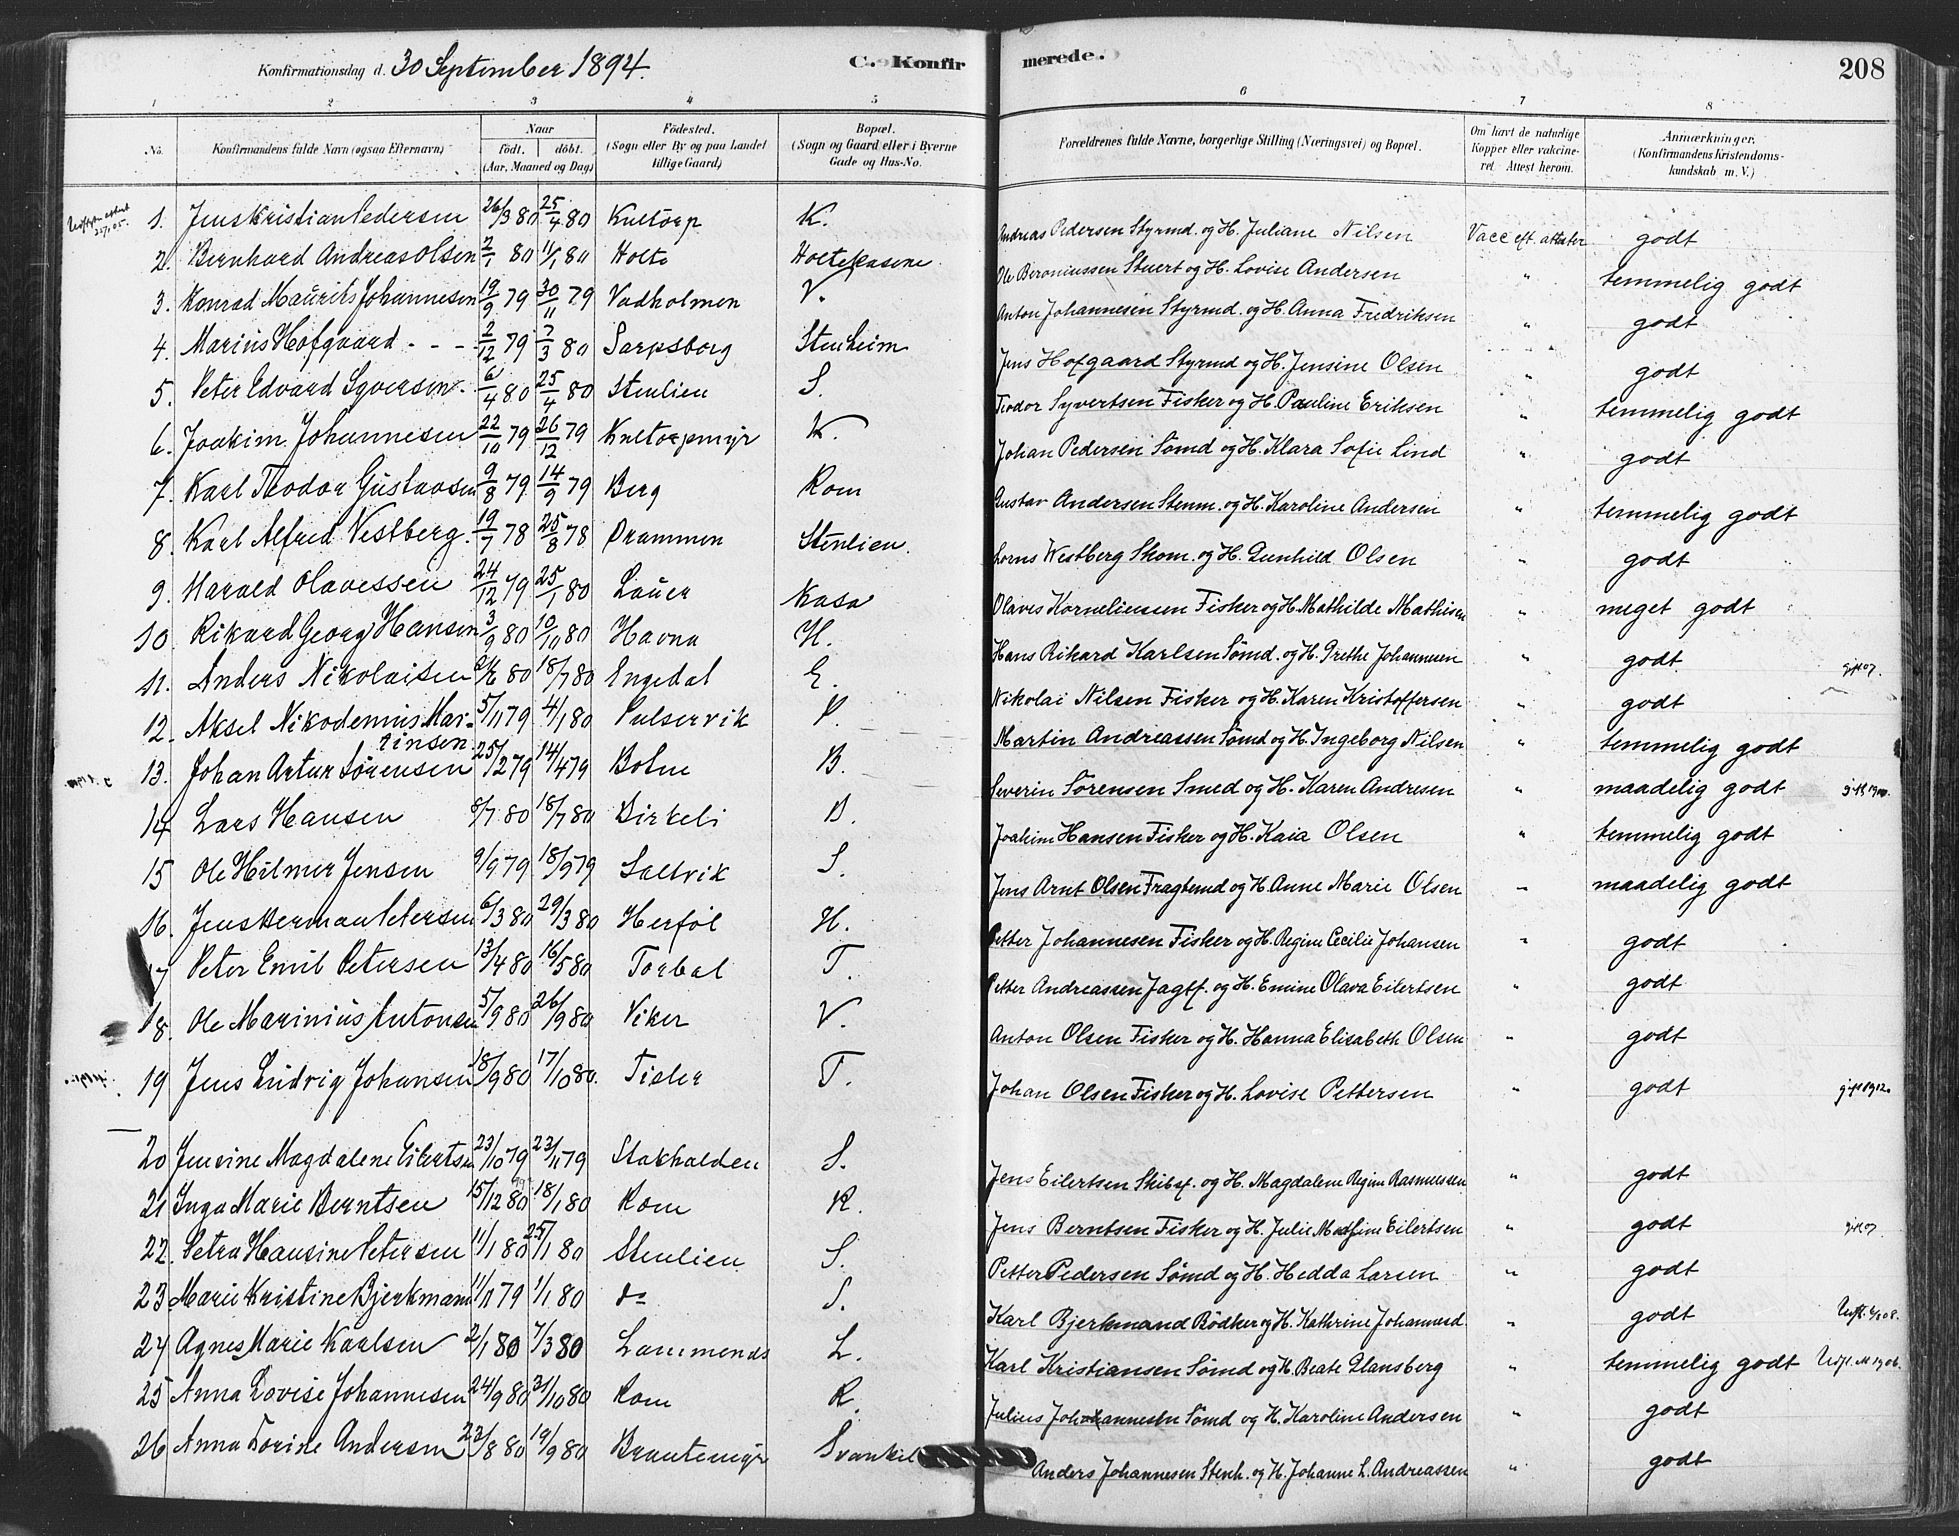 Konfirmationsdag d. 30 September 1894.
C. Konfirmerede.
208
1 2 3 4 5 6 7 8
No.
Konfirmandens fulde Navn (ogsaa Efternavn)
Naar
født. døbt.
(Aar, Maaned og Dag)
Födested.
(Sogn eller By og paa Landet
tillige Gaard)
Bopæl.
(Sogn og Gaard eller i Byerne
Gade og Hus-No.
Forældrenes fulde Navne, borgerlige Stilling (Næringsvei) og Bopæl.
Om havt de naturlige
Kopper eller vakcine-
ret. Attest herom.
Anmærkninger,
(Konfirmandens Kristendoms-
kundskab m. V.)
1. Jens Kristian Pedersen 26/3 80 25/4 80 Knetorp K. Andreas Pedersen Styrmd. og H. Juliane Nilsen Vacc eft. attester godt
2. Bernhard Andreas Olsen 2/1 80 11/1 80 Holte Holtekasene Ole Beroniussen Stuert og H. Lovise Andersen " temmelig godt
3. Konrad Maurits Johannesen 19/9 79 30/11 79 Vadholmen V. Anton Johannesen Styrmd. og H. Anna Fredriksen " godt
4. Marius Hofgaard - - - 2/12 79 7/3 80 Sarpsborg Stenheim Jens Hofgaard Styrmd og H. Jensine Olsen " godt
5. Peter Edvard Syversen 6/4 80 25/4 80 Stenlien S. Teodor Syvertsen Fisker og H. Pauline Eriksen " temmelig godt
6. Joakim Johannesen 22/10 79 26/12 79 Knetorpmyr K. Johan Pedersen Sömd og H. Klara Sofie Lind " godt
7. Karl Teodor Gustavsen 9/8 79 14/9 79 Berg Rom Gustav Andersen Stenm. og H. Karoline Andersen " temmelig godt
8. Karl Alfred Vestberg. 19/7 78 25/8 78 Drammen Stenlien. Lorns Westberg Skom. og H. Gunhild Olsen " godt
9. Harald Olavessen 24/12 79 25/1 80 Lauer Kasa Olaves Korneliussen Fisker og H. Mathilde Mathisen " meget godt
10. Rikard Georg Hansen 3/9 80 10/10 80 Havna H. Hans Rikard Karlsen Sömd. og H. Grethe Johannesen " godt
11. Anders Nikolaisen 80 18/7 80 Engedal E. Nikolai Nilsen Fisker og H. Karen Kristoffersen " godt
12. Aksel Nikodemus Mar-
tinsen 5/11 79 4/1 80 Pulservik P. Martin Andreassen Sømd og H. Ingeborg Nilsen " temmelig godt
13. Johan Artur Sørensen 25/2 79 14/4 79 Bolne B. Severin Sörensen Smed og H. Karen Andresen " maadelig godt
14 Lars Hansen 8/7 80 18/7 80 Birkeli B. Joakim Hansen Fisker og H. Kaia Olsen " temmelig godt
15 Ole Hilmer Jensen 9/9 79 18/9 79 Saltvik S. Jens Arnt Olsen Fragtemd og H. Anne Marie Olsen " maadelig godt
16. Jens Herman Petersen 6/3 80 29/3 80 Herføl H. Petter Johannesen Fisker og H. Regine Cecilie Johansen " godt
17 Peter Emil Petersen 13/4 80 16/5 80 Torbal T. Petter Andreassen Jagtf. og H. Emine Olava Eilertsen " godt
18. Ole Marinius Antonsen 5/9 80 26/9 80 Viker V. Anton Olsen Fisker og H. Hanna Elisabeth Olsen " godt
19 Jens Ludvig Johansen 18/9 80 17/10 80. Tisler T. Johan Olsen Fisker og H. Lovise Pettersen " godt gift 1912.
20 Jensine Magdalene Eilertsen 23/10 79 23/11 79 Stakhalden S. Jens Eilertsen Skibsf. og H. Magdalene Regine Rasmussen " godt
21 Inga Marie Berntsen 15/12 80 18/1 80 Rom R. Jens Berntsen Fisker og H. Julie Eilertsen " godt
22. Petra Hansine Petersen 11/1 80 25/1 80 Stenlien S. Petter Pedersen Sömd og H. Hedda Larsen " godt
23 Marie Kristine Bjerkmann 11/11 79 1/1 80 do S. Karl Bjerkmand Bödker og H. Kathrine " godt
24 Agnes Marie Karlsen 2/1 80 7/3 80 Lammends L. Karl Kristiansen Sömd og H. Beate Glansberg " temmelig godt
25 Anna Lovise Johannesen 24/9 80 31/10 80 Rom R. Julius Johannesen Sömd og H. Karoline Andersen " godt
26 Anna Torine Andersen 23/8 80 19/9 80 Brautemyr Svankil Anders Johannesen Stenh. og H. Johanne L. Andreassen " godt